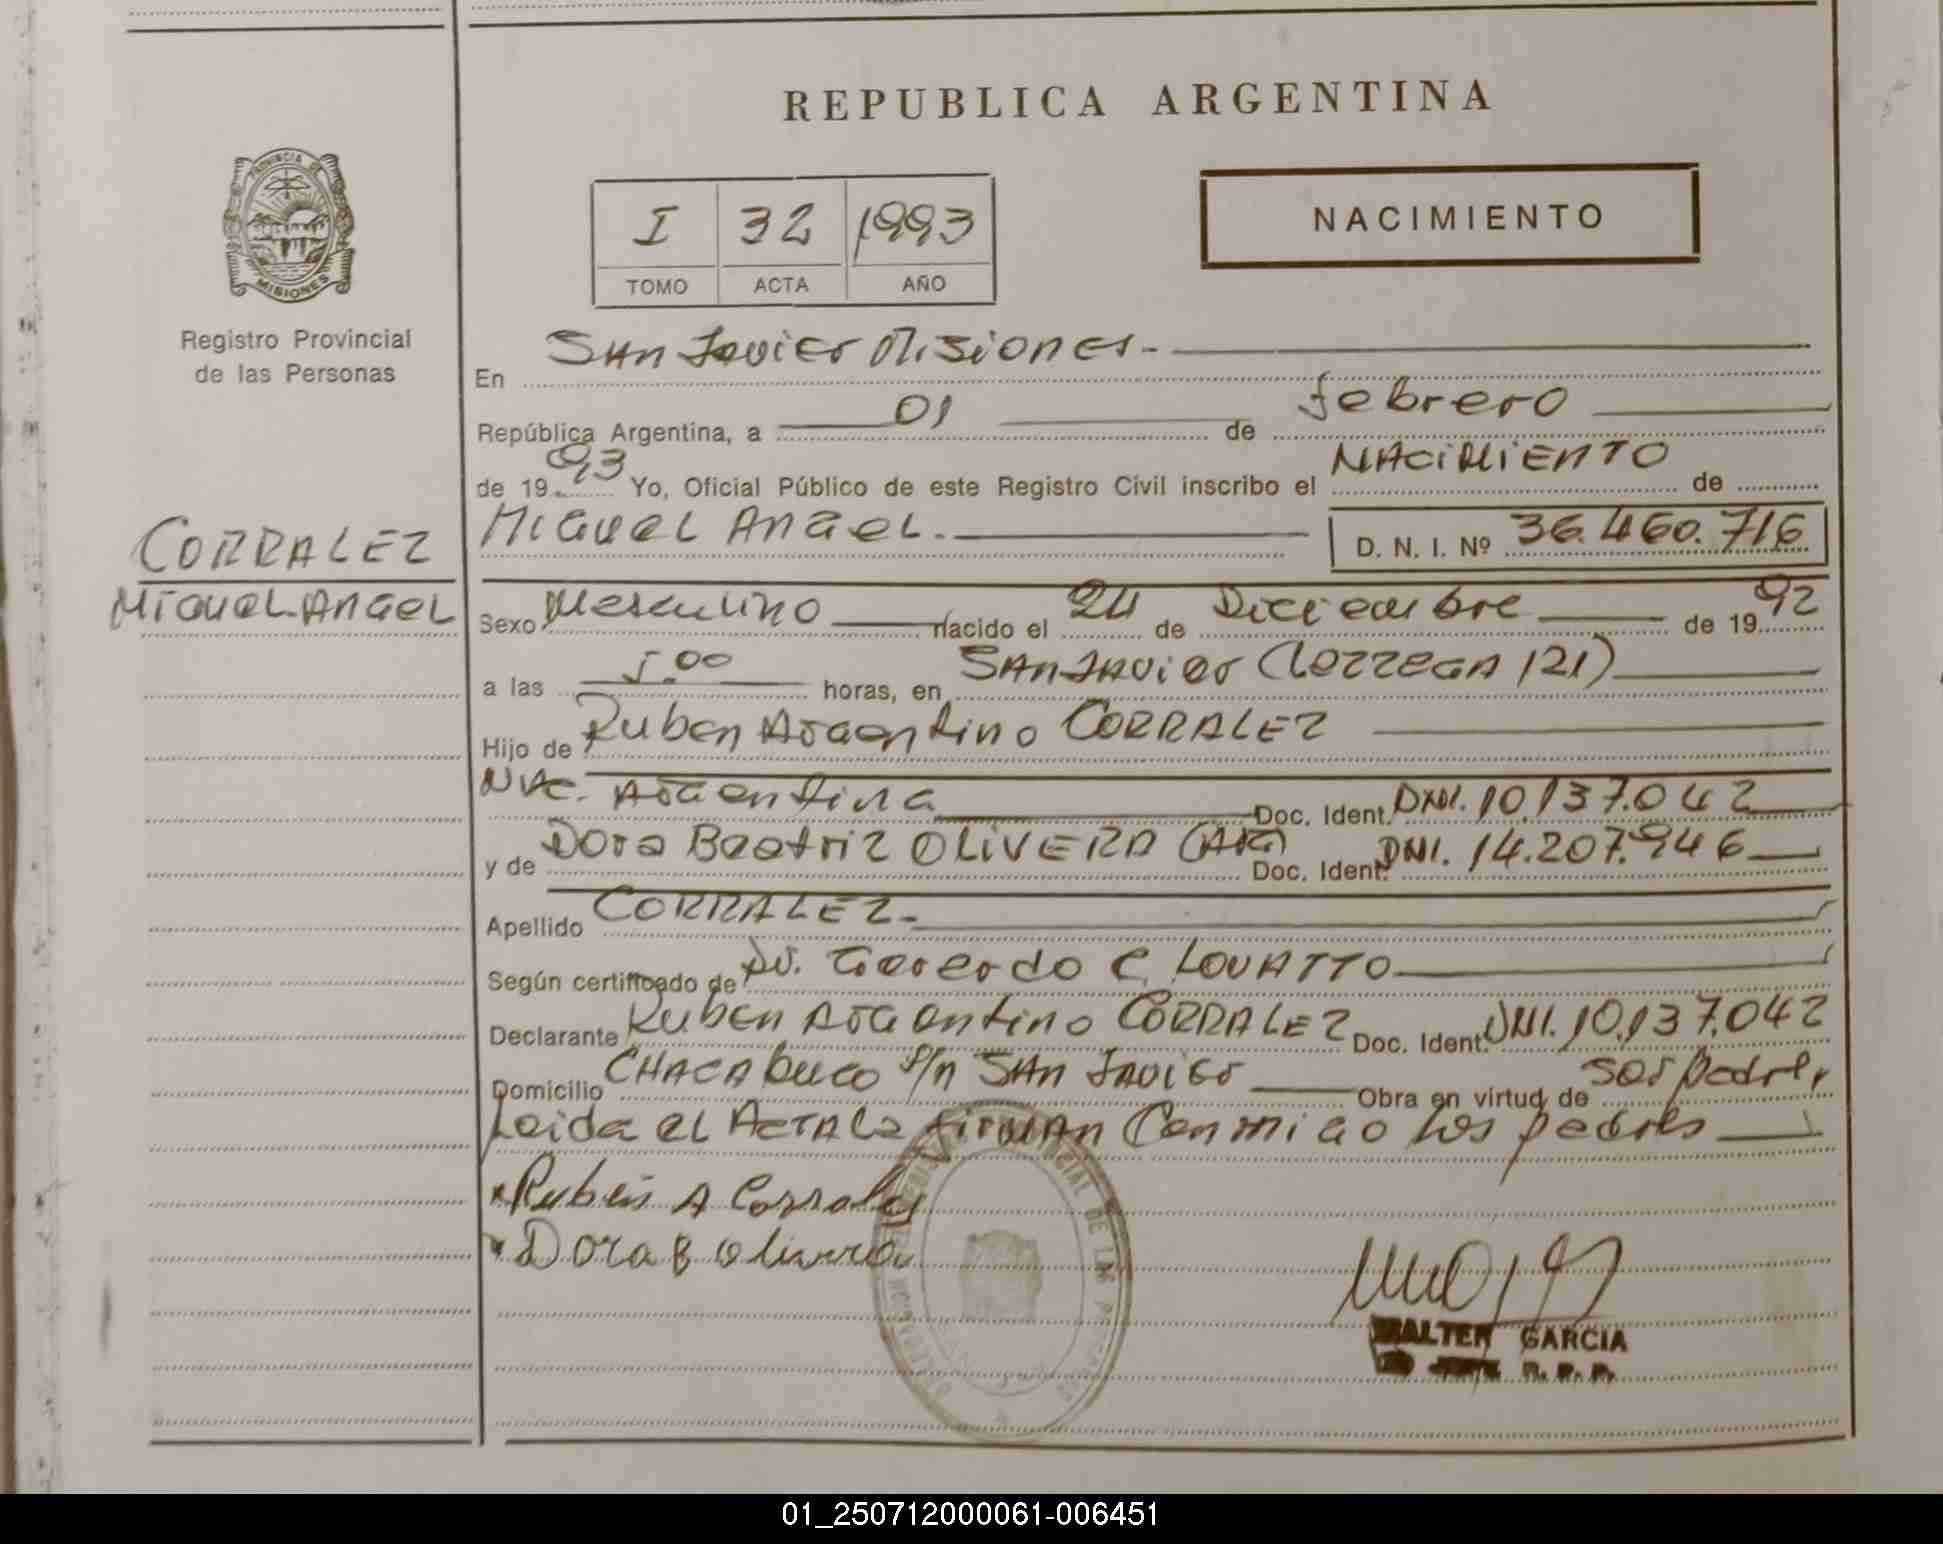 REPUBLICA ARGENTINA
PROVINCIA DE
MISIONES
Registro Provincial
de las Personas
I 32 1993
TOMO ACTA AÑO
NACIMIENTO
En San Javier Misiones.-
República Argentina, a 01 de febrero
de 1993 Yo, Oficial Público de este Registro Civil inscribo el NACIMIENTO de
MIGUEL ANGEL.- D. N. I. Nº 36.460.716
CORRALEZ
MIGUEL ANGEL
Sexo Masculino nacido el 24 de Diciembre de 1992
a las 5.00 horas, en SAN JAVIER (LOZZEGA 121)
Hijo de Ruben Argentino CORRALEZ
NAC. Argentina Doc. Ident. DNI. 10.137.042
y de Dora Beatriz OLIVERA (ARG) Doc. Ident. DNI. 14.207.946
Apellido CORRALEZ.-
Según certificado de Dr. Gerardo C. LOVATTO
Declarante Ruben Argentino CORRALEZ Doc. Ident. DNI. 10.137.042
Domicilio CHACABUCO s/n SAN JAVIER Obra en virtud de ser padre,
Leida el ACTA la firman Conmigo los padres
Ruben A Corralez
Dora B Olivera
WALTER GARCIA
R. P. P.
01_250712000061-006451